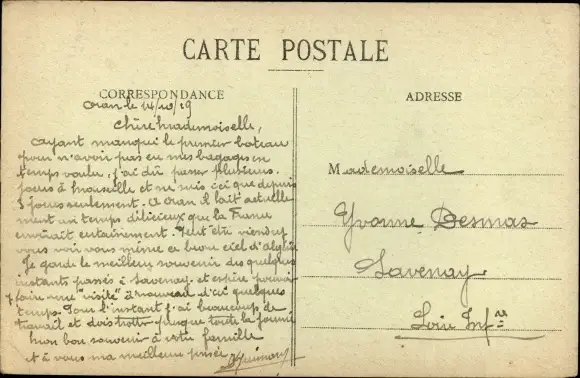 CARTE POSTALE
CORRESPONDANCE
ADRESSE
Oran le 14/10/19
Chère Mademoiselle,
Ayant manqué le premier bateau
pour n'avoir pas eu mes bagages en
temps voulu, j'ai dû passer plusieurs
jours à Marseille et ne suis ici que depuis
3 jours seulement. A Oran il fait actuelle-
ment un temps délicieux que la France
envierait certainement. Peut être viendrez
vous voir vous même ce beau ciel d'Algérie
Je garde le meilleur souvenir des quelques
instants passés à Savenay et espère pouvoir
y faire une "visite" à nouveau d'ici quelques
temps. Pour l'instant j'ai beaucoup de
travail et dois trotter presque toute la journée
Mon bon souvenir à votre famille
et à vous ma meilleure pensée
Mademoiselle
Yvonne Desmas
Savenay
Loire Infre